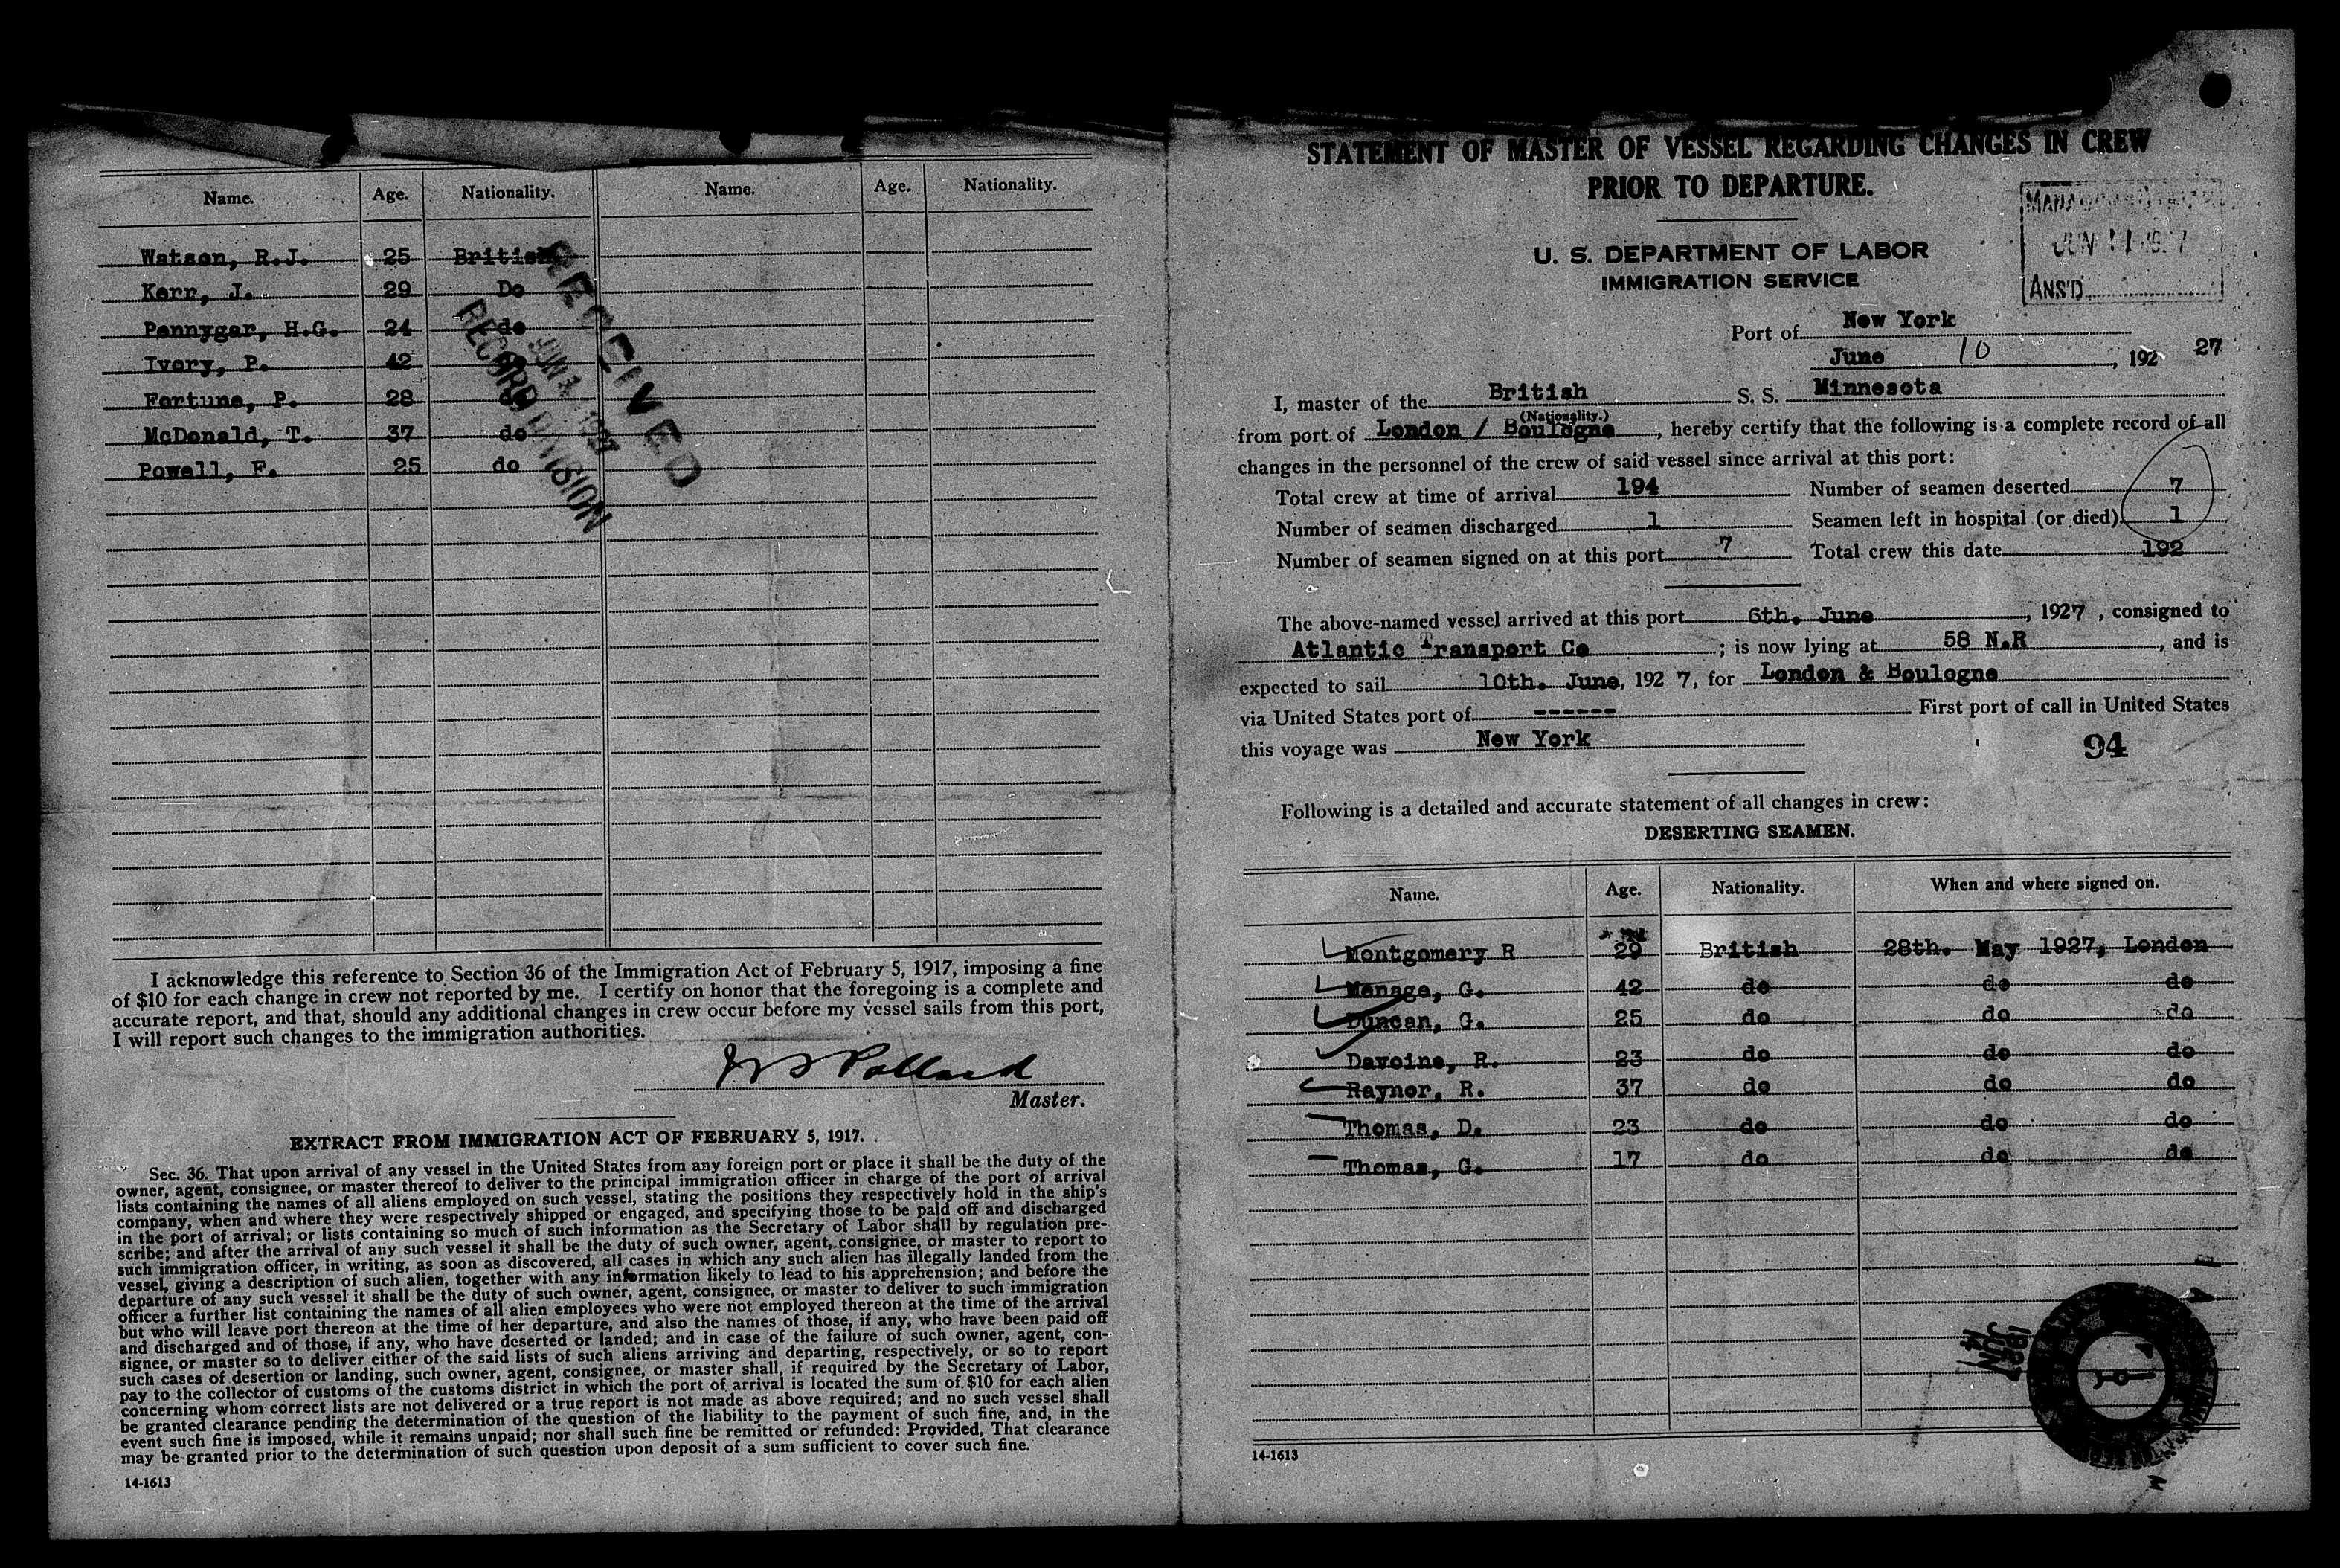 Name. Age. Nationality. Name. Age. Nationality.
Watson, R.J. 25 British
Kerr, J. 29 Do
Pennygar, H.G. 24 do
Ivory, P. 42
Fortune, P. 28 do
McDonald, T. 37 do
Powell, F. 25 do
RECEIVED
RECORD DIVISION
I acknowledge this reference to Section 36 of the Immigration Act of February 5, 1917, imposing a fine
of $10 for each change in crew not reported by me. I certify on honor that the foregoing is a complete and
accurate report, and that, should any additional changes in crew occur before my vessel sails from this port,
I will report such changes to the immigration authorities.
Pollard
Master.
EXTRACT FROM IMMIGRATION ACT OF FEBRUARY 5, 1917.
Sec. 36. That upon arrival of any vessel in the United States from any foreign port or place it shall be the duty of the
owner, agent, consignee, or master thereof to deliver to the principal immigration officer in charge of the port of arrival
lists containing the names of all aliens employed on such vessel, stating the positions they respectively hold in the ship's
company, when and where they were respectively shipped or engaged, and specifying those to be paid off and discharged
in the port of arrival; or lists containing so much of such information as the Secretary of Labor shall by regulation pre-
scribe; and after the arrival of any such vessel it shall be the duty of such owner, agent, consignee, or master to report to
such immigration officer, in writing, as soon as discovered, all cases in which any such alien has illegally landed from the
vessel, giving a description of such alien, together with any information likely to lead to his apprehension; and before the
departure of any such vessel it shall be the duty of such owner, agent, consignee, or master to deliver to such immigration
officer a further list containing the names of all alien employees who were not employed thereon at the time of the arrival
but who will leave port thereon at the time of her departure, and also the names of those, if any, who have been paid off
and discharged and of those, if any, who have deserted or landed; and in case of the failure of such owner, agent, con-
signee, or master so to deliver either of the said lists of such aliens arriving and departing, respectively, or so to report
such cases of desertion or landing, such owner, agent, consignee, or master shall, if required by the Secretary of Labor,
pay to the collector of customs of the customs district in which the port of arrival is located the sum of $10 for each alien
concerning whom correct lists are not delivered or a true report is not made as above required; and no such vessel shall
be granted clearance pending the determination of the question of the liability to the payment of such fine, and, in the
event such fine is imposed, while it remains unpaid; nor shall such fine be remitted or refunded: Provided, That clearance
may be granted prior to the determination of such question upon deposit of a sum sufficient to cover such fine.
14-1613
STATEMENT OF MASTER OF VESSEL REGARDING CHANGES IN CREW
PRIOR TO DEPARTURE.
JUN 11
ANS'D
U. S. DEPARTMENT OF LABOR
IMMIGRATION SERVICE
Port of New York
June 10, 192 27
I, master of the British S. S. Minnesota
(Nationality.)
from port of London / Boulogne, hereby certify that the following is a complete record of all
changes in the personnel of the crew of said vessel since arrival at this port:
Total crew at time of arrival 194 Number of seamen deserted 7
Number of seamen discharged 1 Seamen left in hospital (or died) 1
Number of seamen signed on at this port 7 Total crew this date 192
The above-named vessel arrived at this port 6th. June, 1927, consigned to
Atlantic Transport Co; is now lying at 58 N.R, and is
expected to sail 10th. June, 192 7, for London & Boulogne
via United States port of ------ First port of call in United States
this voyage was New York
94
Following is a detailed and accurate statement of all changes in crew:
DESERTING SEAMEN.
Name. Age. Nationality. When and where signed on.
Montgomery R 29 British 28th. May 1927, London
Menage, G. 42 do do do
Duncan, G. 25 do do do
Davoine, R. 23 do do do
Rayner, R. 37 do do do
Thomas, D. 23 do do do
Thomas, G. 17 do do do
JUN
14-1613